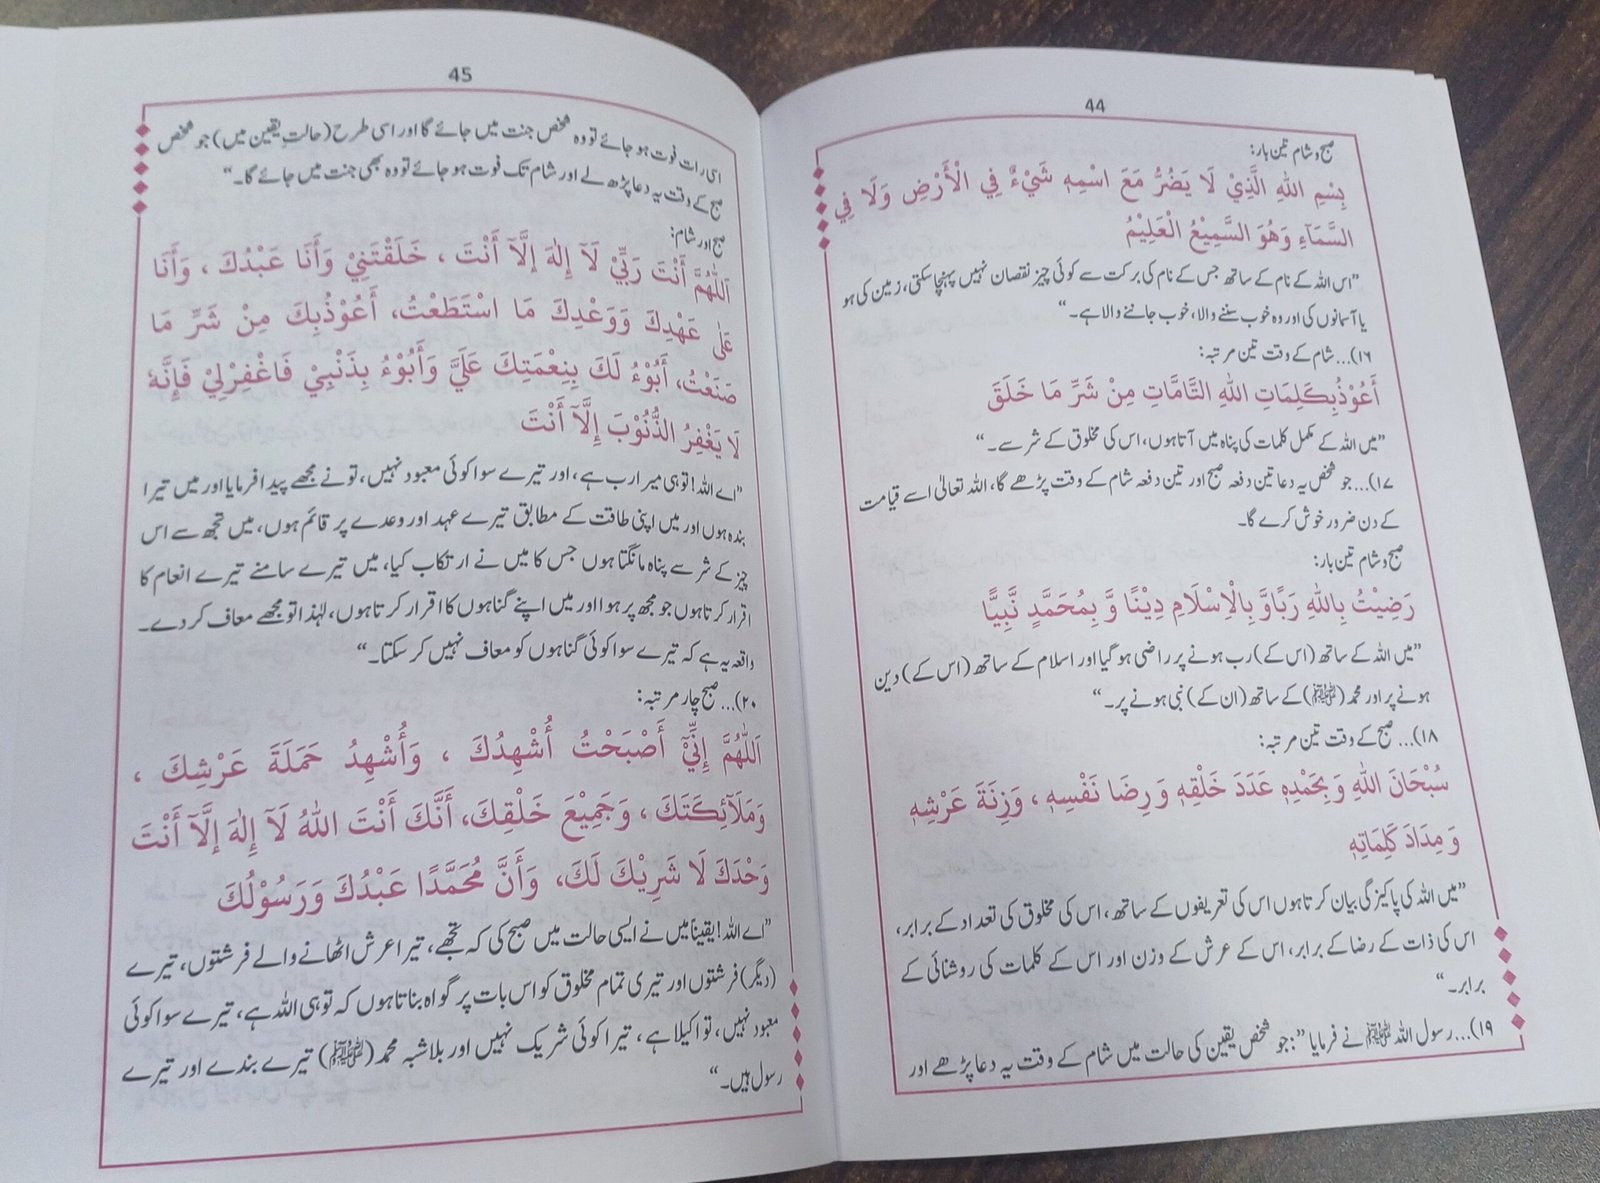 44
صبح و شام تین بار:
بِسْمِ اللّٰهِ الَّذِيْ لَا يَضُرُّ مَعَ اسْمِهٖ شَيْءٌ فِي الْأَرْضِ وَلَا فِي
السَّمَآءِ وَهُوَ السَّمِيْعُ الْعَلِيْمُ
”اس اللہ کے نام کے ساتھ جس کے نام کی برکت سے کوئی چیز نقصان نہیں پہنچا سکتی، زمین کی ہو
یا آسمانوں کی اور وہ خوب سننے والا، خوب جاننے والا ہے۔“
۱۶)...شام کے وقت تین مرتبہ:
أَعُوْذُ بِكَلِمَاتِ اللّٰهِ التَّامَّاتِ مِنْ شَرِّ مَا خَلَقَ
”میں اللہ کے مکمل کلمات کی پناہ میں آتا ہوں، اس کی مخلوق کے شر سے۔“
۱۷)...جو شخص یہ دعا تین دفعہ صبح اور تین دفعہ شام کے وقت پڑھے گا، اللہ تعالیٰ اسے قیامت
کے دن ضرور خوش کرے گا۔
صبح و شام تین بار:
رَضِيْتُ بِاللّٰهِ رَبًّا وَّ بِالْاِسْلَامِ دِيْنًا وَّ بِمُحَمَّدٍ نَّبِيًّا
”میں اللہ کے ساتھ (اس کے) رب ہونے پر راضی ہو گیا اور اسلام کے ساتھ (اس کے) دین
ہونے پر اور محمد (ﷺ) کے ساتھ (ان کے) نبی ہونے پر۔“
۱۸)... صبح کے وقت تین مرتبہ:
سُبْحَانَ اللّٰهِ وَ بِحَمْدِهٖ عَدَدَ خَلْقِهٖ وَ رِضَا نَفْسِهٖ ، وَزِنَةَ عَرْشِهٖ
وَ مِدَادَ كَلِمَاتِهٖ
”میں اللہ کی پاکیزگی بیان کرتا ہوں اس کی تعریفوں کے ساتھ، اس کی مخلوق کی تعداد کے برابر،
اس کی ذات کے رضا کے برابر، اس کے عرش کے وزن اور اس کے کلمات کی روشنائی کے
برابر۔“
۱۹)...رسول اللہ ﷺ نے فرمایا:”جو شخص یقین کی حالت میں شام کے وقت یہ دعا پڑھے اور
45
اسی رات فوت ہو جائے تو وہ شخص جنت میں جائے گا اور اسی طرح (حالتِ یقین میں) جو شخص
صبح کے وقت یہ دعا پڑھ لے اور شام تک فوت ہو جائے تو وہ بھی جنت میں جائے گا۔“
صبح اور شام:
اَللّٰهُمَّ أَنْتَ رَبِّيْ لَآ إِلٰهَ إِلَّآ أَنْتَ ، خَلَقْتَنِيْ وَأَنَا عَبْدُكَ ، وَأَنَا
عَلٰى عَهْدِكَ وَوَعْدِكَ مَا اسْتَطَعْتُ، أَعُوْذُبِكَ مِنْ شَرِّ مَا
صَنَعْتُ، أَبُوْءُ لَكَ بِنِعْمَتِكَ عَلَيَّ وَأَبُوْءُ بِذَنْبِيْ فَاغْفِرْلِيْ فَإِنَّهٗ
لَا يَغْفِرُ الذُّنُوْبَ إِلَّآ أَنْتَ
”اے اللہ! تو ہی میرا رب ہے، اور تیرے سوا کوئی معبود نہیں، تو نے مجھے پیدا فرمایا اور میں تیرا
بندہ ہوں اور میں اپنی طاقت کے مطابق تیرے عہد اور وعدے پر قائم ہوں، میں تجھ سے اس
چیز کے شر سے پناہ مانگتا ہوں جس کا میں نے ارتکاب کیا، میں تیرے سامنے تیرے انعام کا
اقرار کرتا ہوں جو مجھ پر ہوا اور میں اپنے گناہوں کا اقرار کرتا ہوں، لہٰذا تو مجھے معاف کر دے۔
واقعہ یہ ہے کہ تیرے سوا کوئی گناہوں کو معاف نہیں کر سکتا۔“
۲۰)...صبح چار مرتبہ:
اَللّٰهُمَّ إِنِّيْٓ أَصْبَحْتُ أُشْهِدُكَ ، وَأُشْهِدُ حَمَلَةَ عَرْشِكَ ،
وَمَلَآئِكَتَكَ ، وَجَمِيْعَ خَلْقِكَ، أَنَّكَ أَنْتَ اللّٰهُ لَآ إِلٰهَ إِلَّآ أَنْتَ
وَحْدَكَ لَا شَرِيْكَ لَكَ، وَأَنَّ مُحَمَّدًا عَبْدُكَ وَرَسُوْلُكَ
”اے اللہ! یقیناً میں نے ایسی حالت میں صبح کی کہ تجھے، تیرا عرش اٹھانے والے فرشتوں، تیرے
(دیگر) فرشتوں اور تیری تمام مخلوق کو اس بات پر گواہ بناتا ہوں کہ تو ہی اللہ ہے، تیرے سوا کوئی
معبود نہیں، تو اکیلا ہے، تیرا کوئی شریک نہیں اور بلاشبہ محمد (ﷺ) تیرے بندے اور تیرے
رسول ہیں۔“